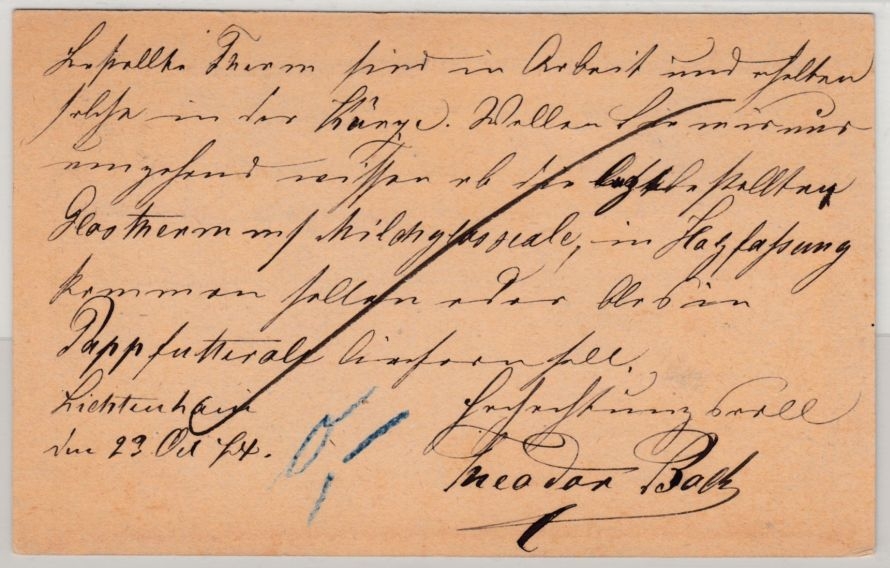 bestellte Therm sind in Arbeit und erhalten
solche in der Kürze. Wollen Sie mir nur
umgehend wissen ob die letztbestellten
Glastherm mit Milchglasscale, in Holzfassung
kommen sollen oder blos in
Pappfutterale liefern soll.
Hochachtungsvoll
Lichtenhain
den 23 Oct 74.
Theodor Bock